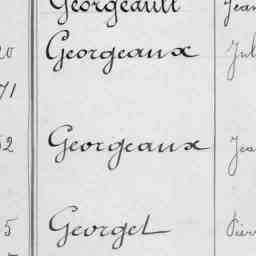 Georgeault Jean
20 Georgeaux Jul
71
52 Georgeaux Jea
5 Georget Pier